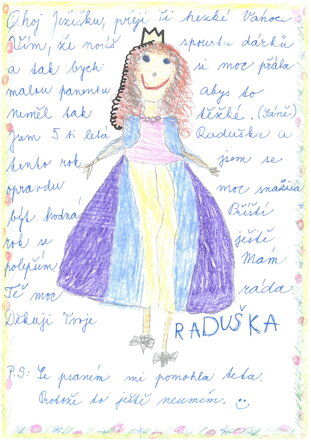 Ahoj Ježíšku, přeji Ti hezké Vánoce
Vím, že nosíš spoustu dárků
a tak bych si moc přála
malou panenku abys to
neměl tak těžké. (Sáně)
Jsem 5 ti letá Raduška a
tento rok jsem se
opravdu moc snažila
být hodná Příští
rok se ještě
polepším. Mám
Tě moc ráda
Děkuji Tvoje
RADUŠKA
P.S: Se psaním mi pomohla teta.
Protože to ještě neumím.